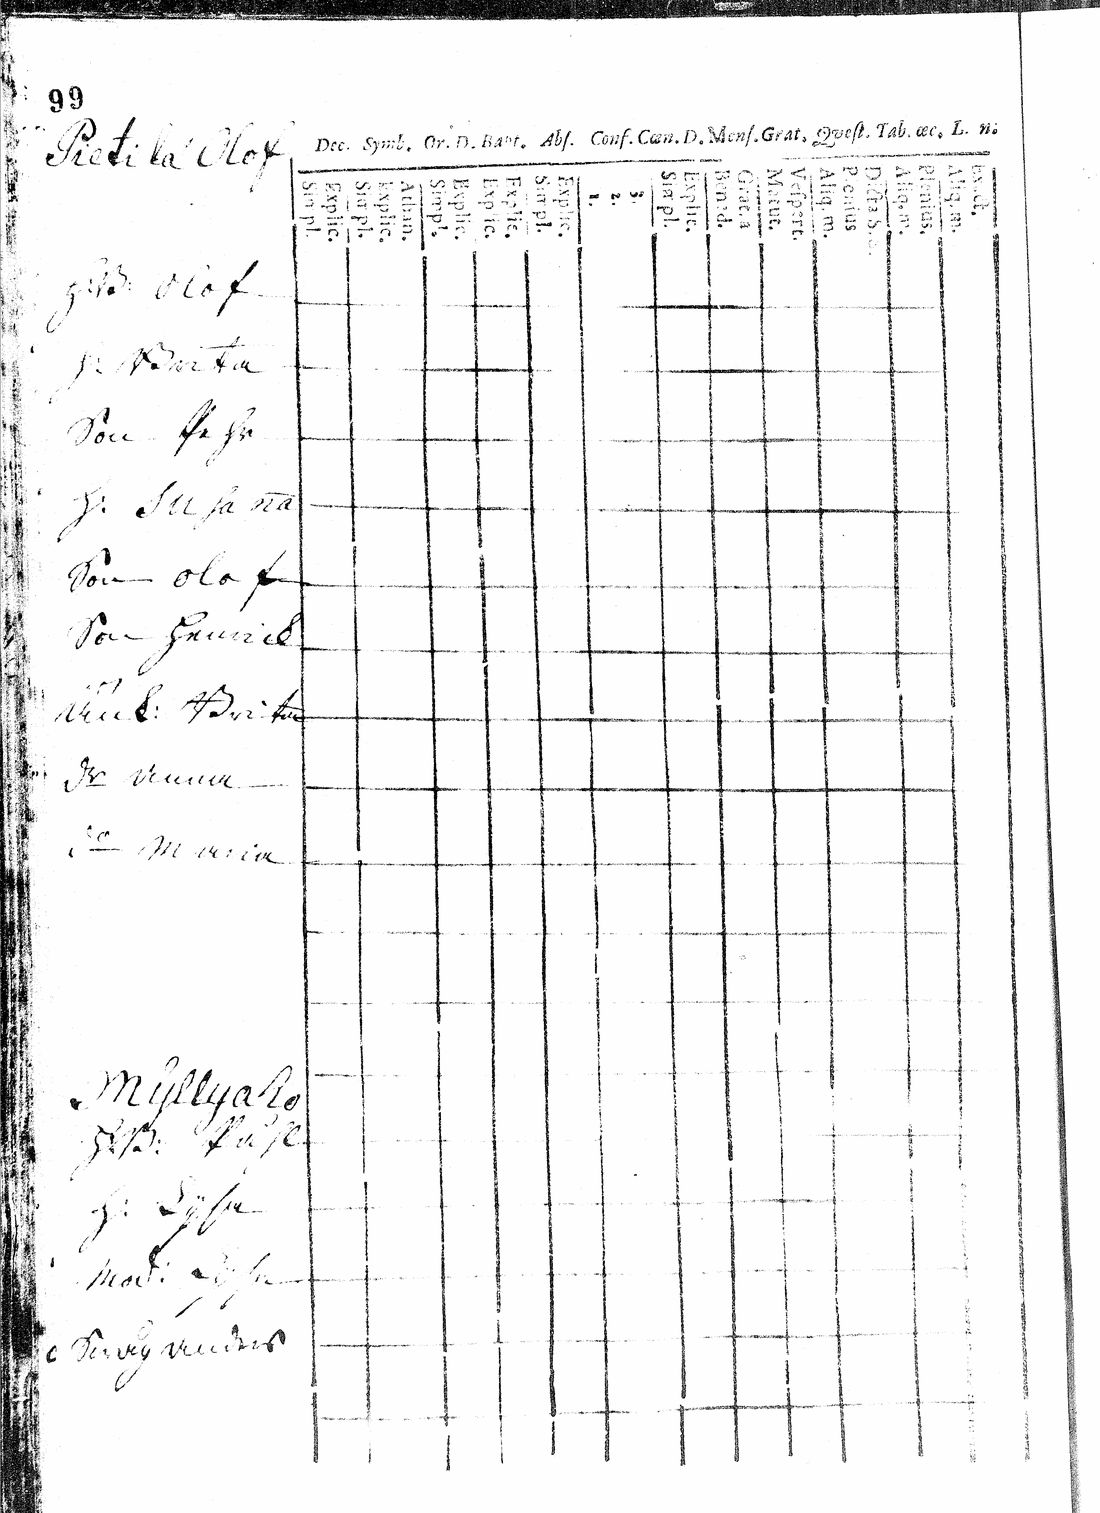 99
Pietila Olof
Dec. Symb. Or. D. Bapt. Abs. Conf. Cœn. D. Mens. Grat. Qvest. Tab. œc. L. n:
Simpl. Explic. Simpl. Explic. Athan. Simpl. Explic. Explic. Explic. Simpl. Explic. 1. 2. 3. Simpl. Explic. Bened. Grat.a Matut. Vespert. Aliq. m. Plenius Dicta S. Aliq. m. Plenius. Aliq. m. Exact.
H:B: Olof
H: Brita
Son Pehr
H: Susana
Son Olof
Son Henrick
Enk: Brita
dr Anna
do Maria
Myllyaho
H:B: Påhl
H: Lysa
Mod: Lysa
Svåg Anders